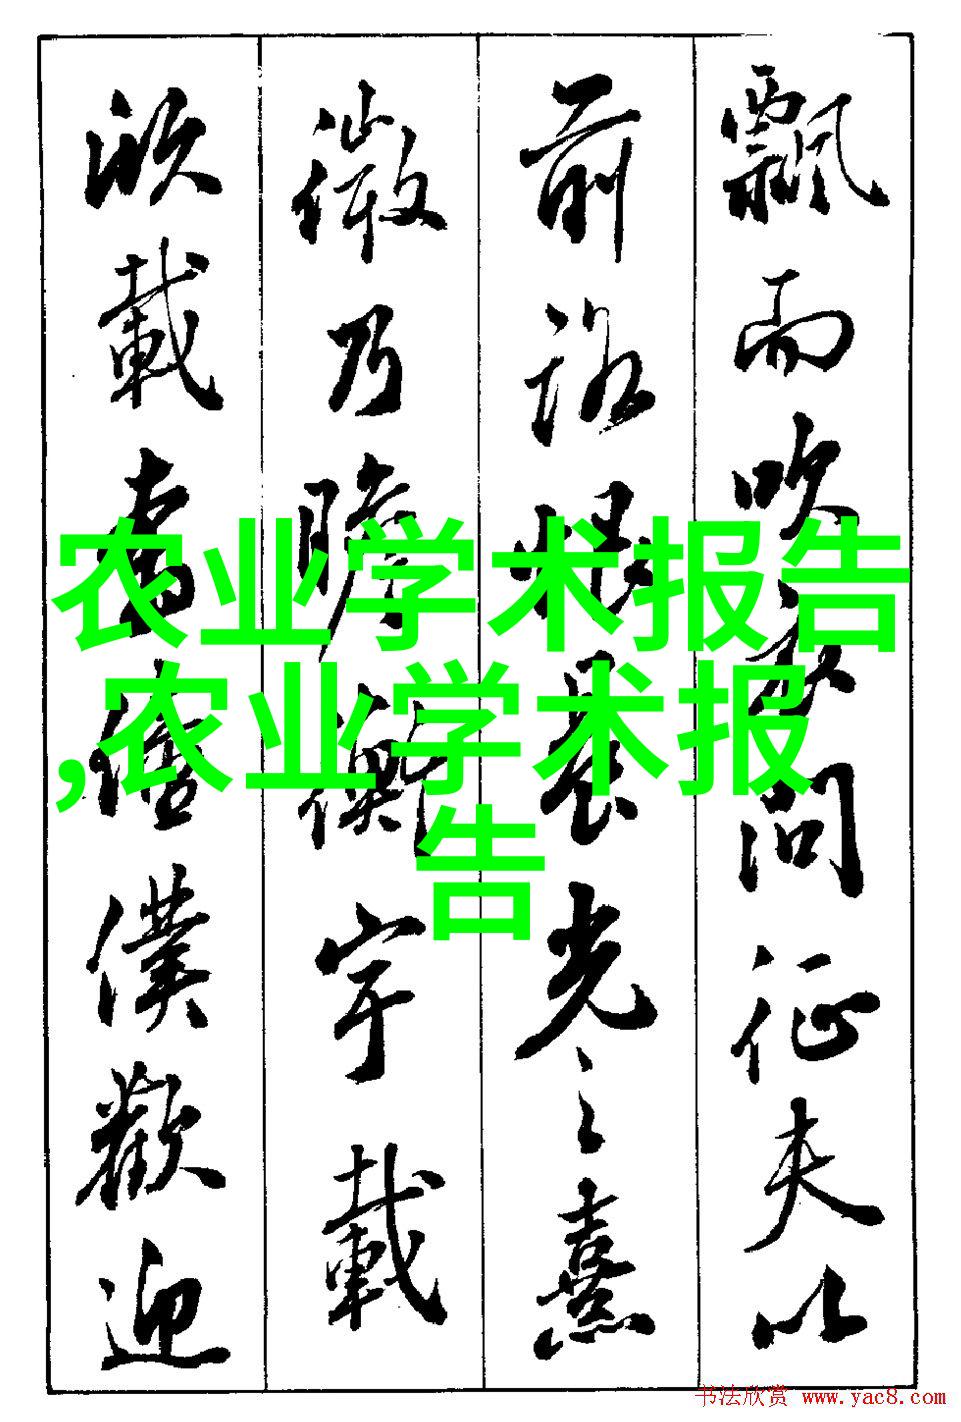 飄而吹衣問征夫以
前路恨晨光之熹
微乃瞻衡宇載
欣載奔僮僕歡迎
农业学术报告
,农业学术报
告
书法欣赏 www.yac8.com